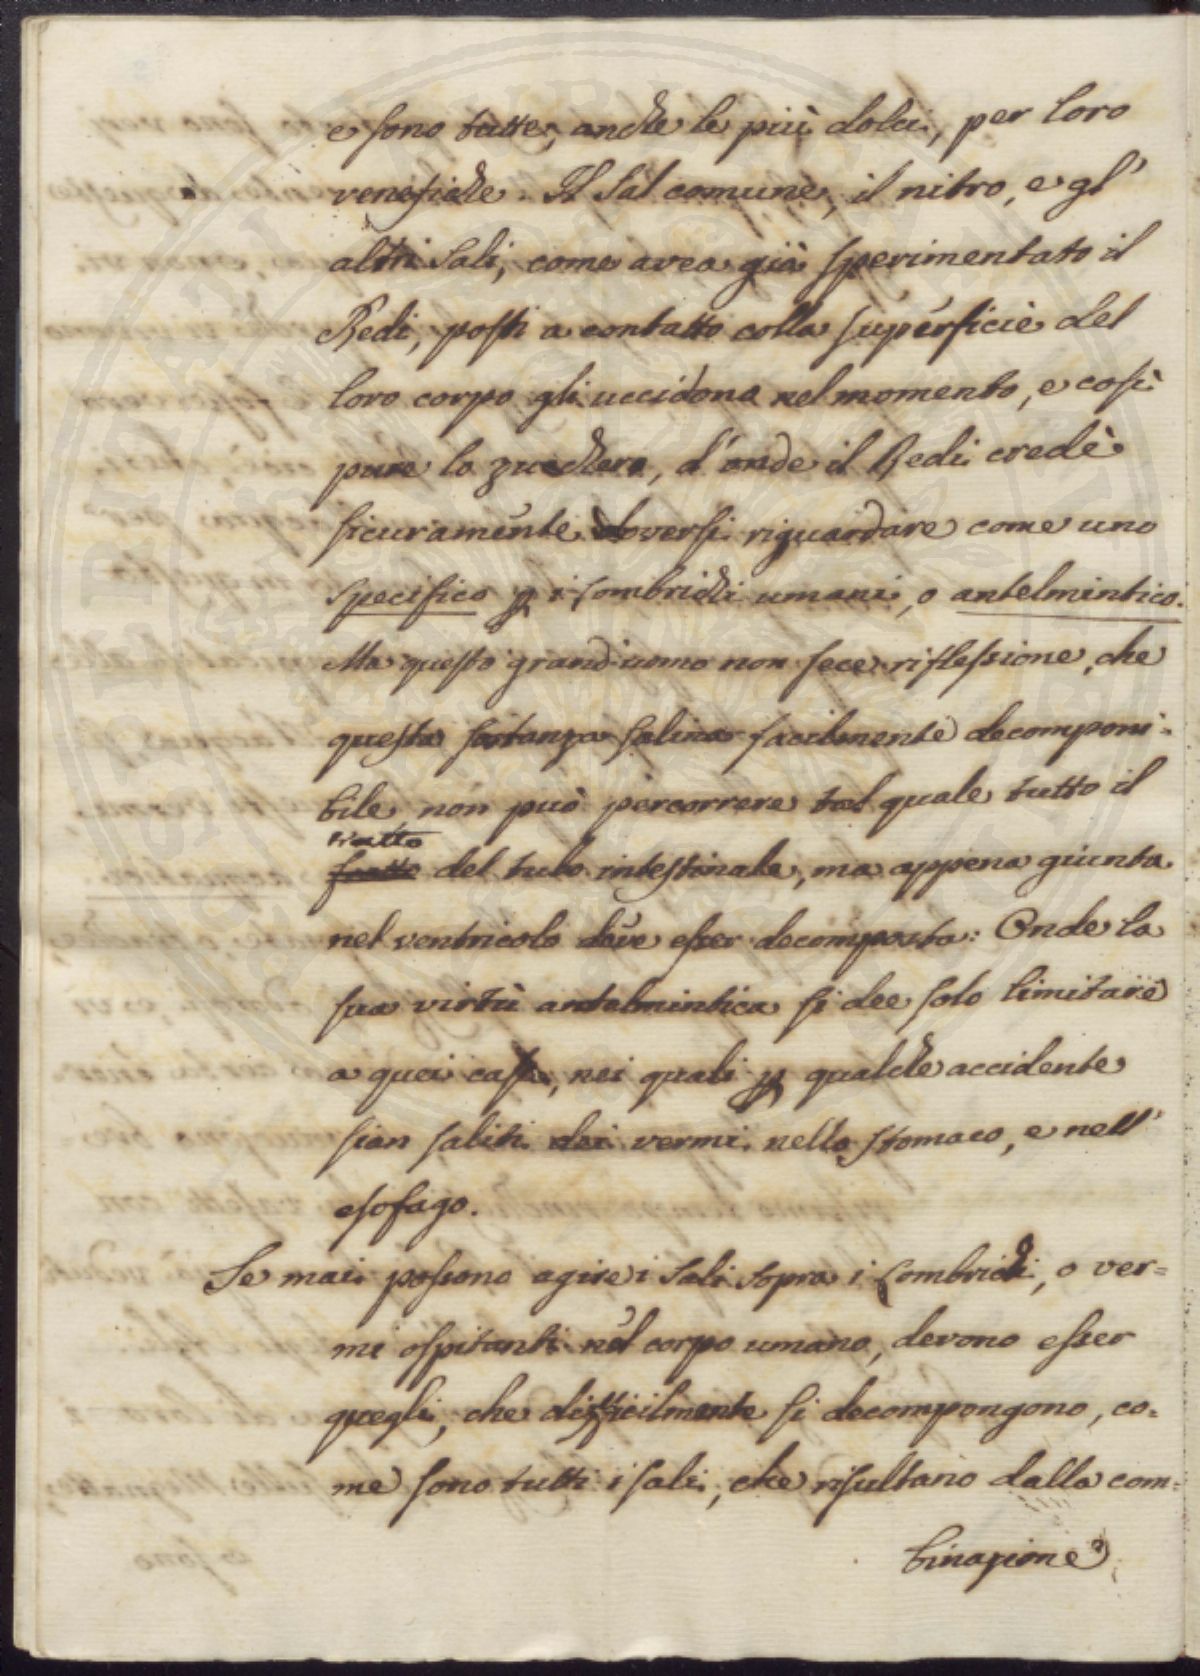 e sono tutte, anche le più dolci, per loro
venefiche. Il Sal comune, il nitro, e gl'
altri Sali, come avea già sperimentato il
Redi, posti a contatto colla superficie del
loro corpo gli uccidono nel momento, e così
pure lo zucchero, d'onde il Redi credè
sicuramente doversi riguardare come uno
specifico p i Lombrichi umani, o antelmintico.
Ma questo grand'uomo non fece riflessione, che
questa sostanza salina facilmente decomponi=
bile, non può percorrere tal quale tutto il
tratto
del tubo intestinale, ma appena giunta
nel ventricolo deve esser decomposta: Onde la
sua virtù antelmintica si dee solo limitare
a quei casi, nei quali p qualche accidente
sian saliti dei vermi nello stomaco, e nell'
esofago.
Se mai possono agire i Sali sopra i Lombrichi, o ver=
mi ospitanti nel corpo umano, devono esser
quegli, che difficilmente si decompongono, co=
me sono tutti i sali, che risultano dalla com=
binazione